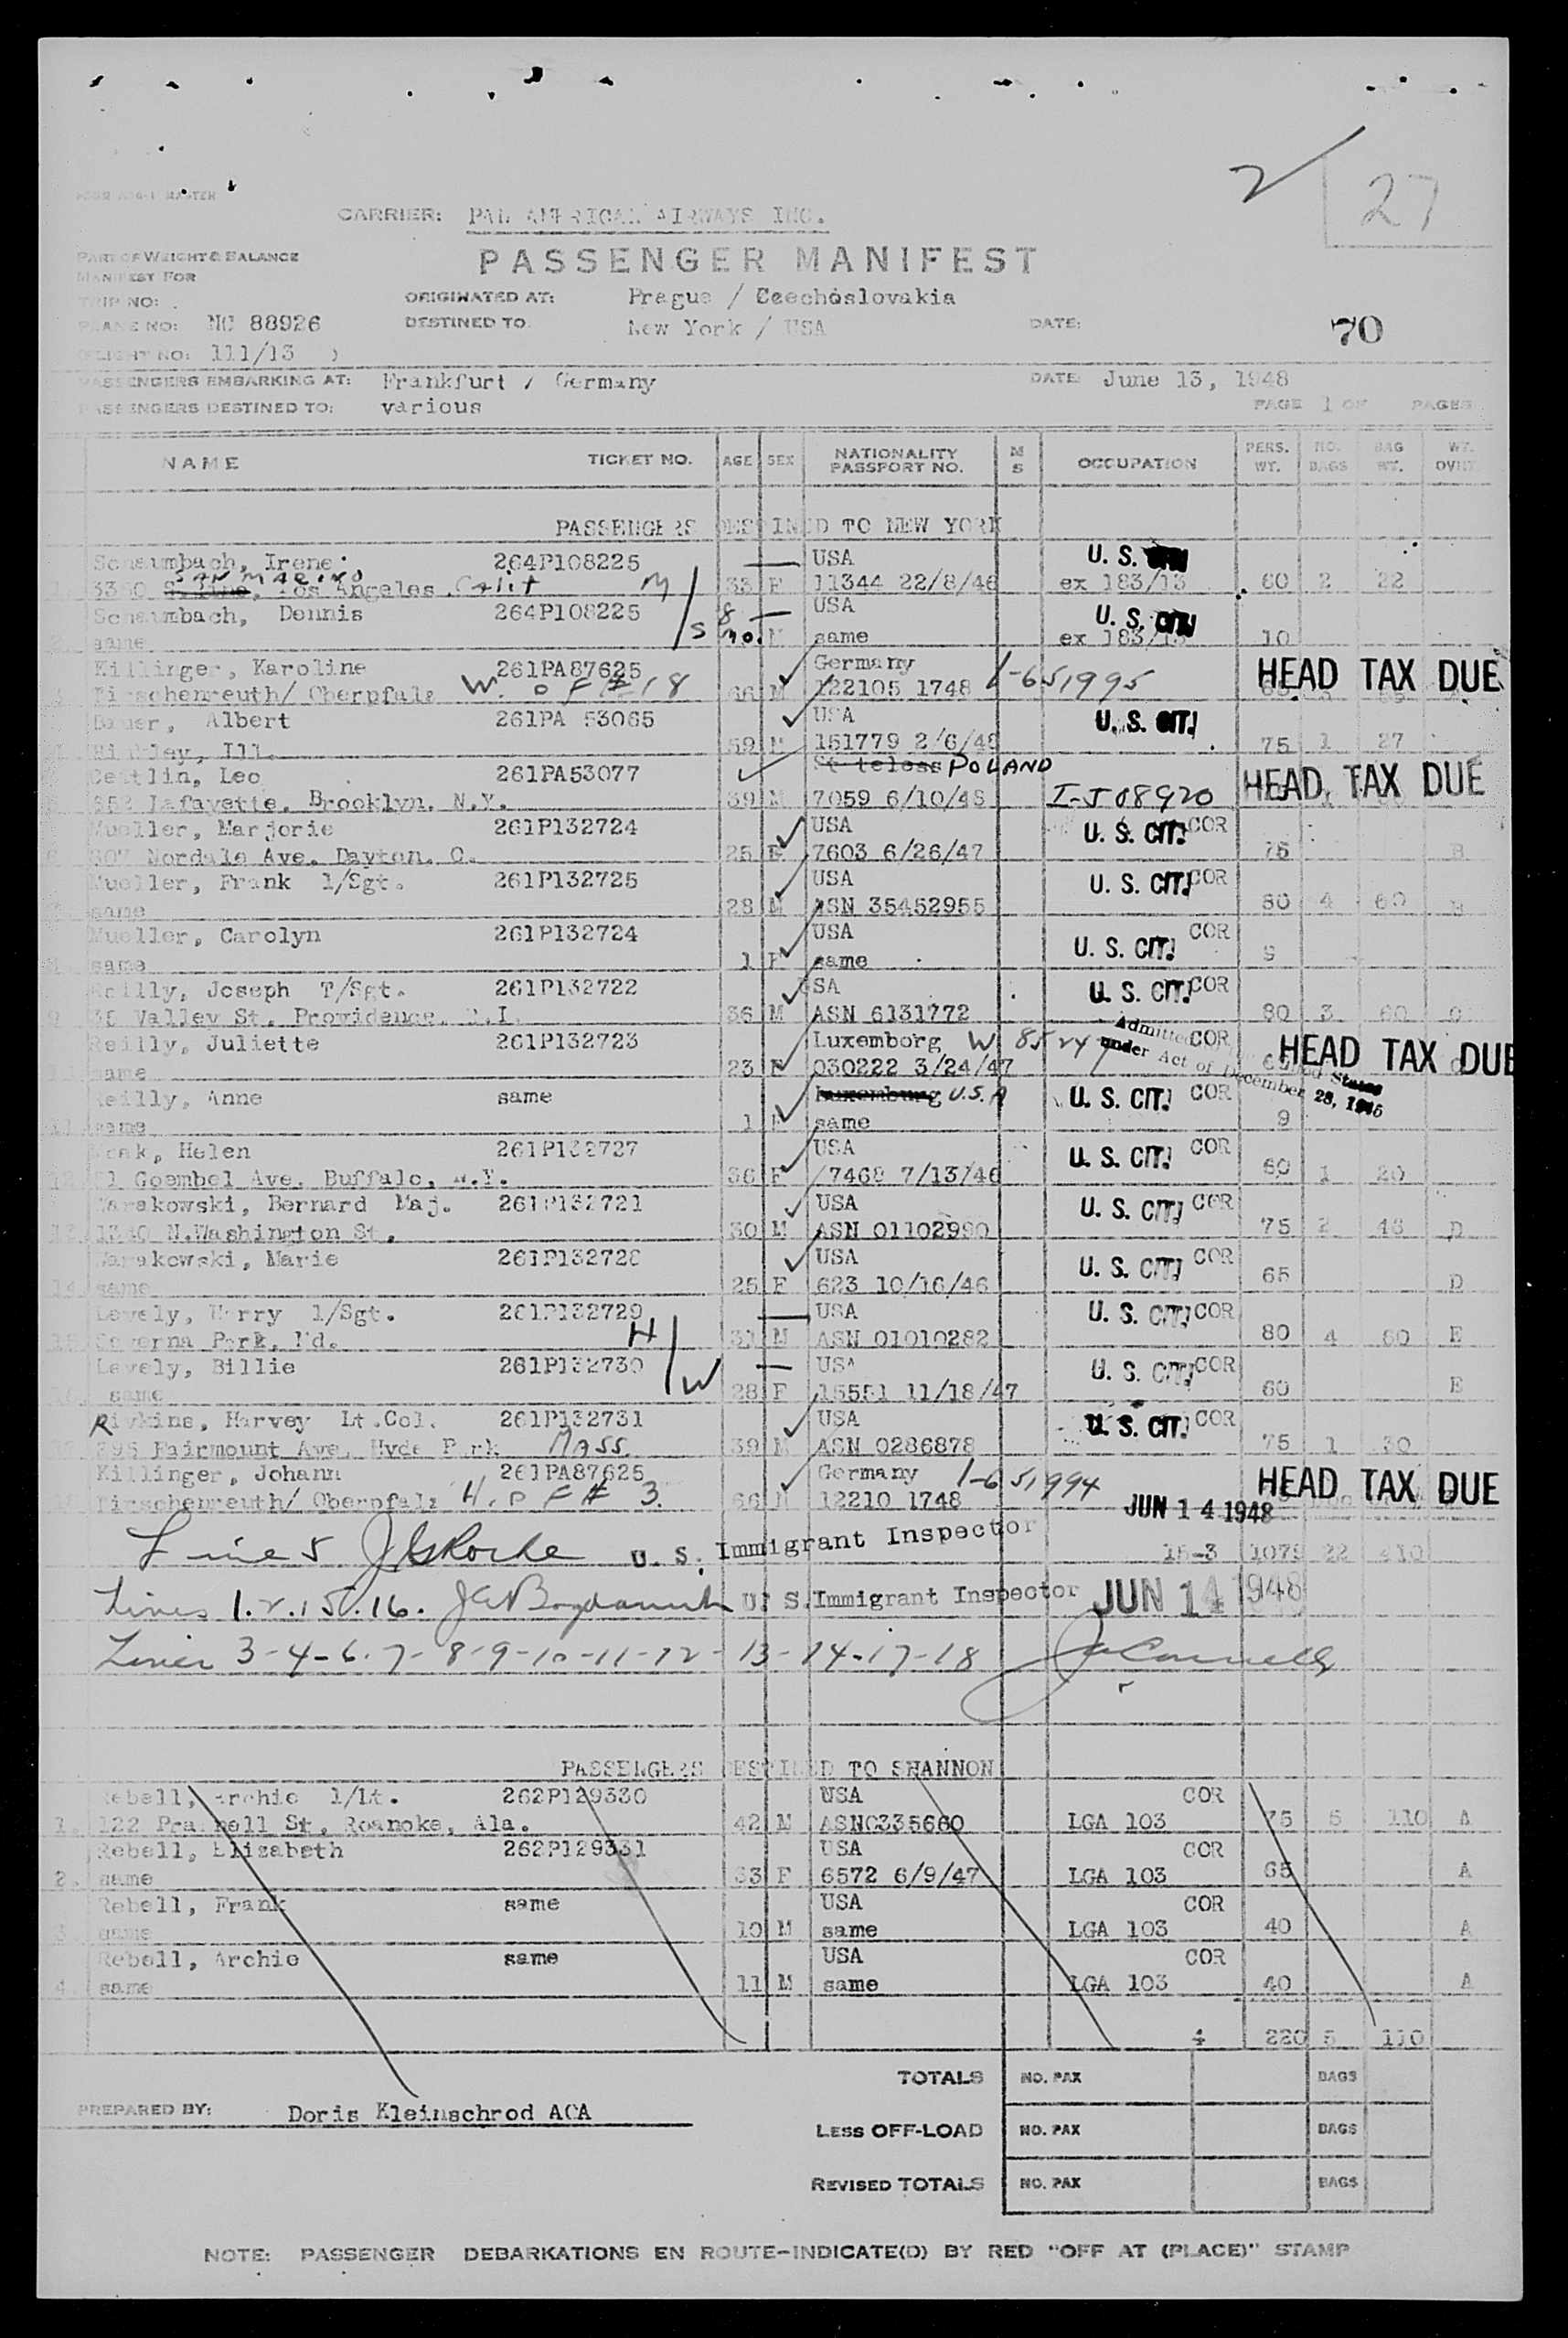 2 27
CARRIER: PAN AMERICAN AIRWAYS INC.
PASSENGER MANIFEST
PART OF WEIGHT & BALANCE
MANIFEST FOR
TRIP NO:
ORIGINATED AT: Prague / Czechoslovakia
PLANE NO: NC 88926 DESTINED TO New York / USA DATE: 70
FLIGHT NO: 111/13
PASSENGERS EMBARKING AT: Frankfurt / Germany DATE June 13, 1948
PASSENGERS DESTINED TO: various PAGE 1 OF PAGES
NAME TICKET NO. AGE SEX NATIONALITY PASSPORT NO. M S OCCUPATION PERS. WT. NO. BAGS BAG WT. WT. OVHT
PASSENGERS DESTINED TO NEW YORK
Schaumbach, Irene 264P108225 USA U. S.
SAN MARINO
Los Angeles Calif M 33 F 11344 22/8/46 ex 183/13 60 2 22
Schaumbach, Dennis 264P108225 8 USA U. S.
2. same S mo. M same ex 183/13 10
Killinger, Karoline 261PA87625 Germany 1-651995 HEAD TAX DUE
Tirschenreuth/ Oberpfalz W. of #18 66 M 122105 1748
Bauer, Albert 261PA 53065 USA U. S. CIT.
Hinkley, Ill. 59 M 151779 2/6/48 75 1 27
Leo 261PA53077 Stateless POLAND HEAD TAX DUE
Lafayette, Brooklyn, N.Y. 39 M 7059 6/10/48 I-508920
Mueller, Marjorie 261P132724 USA U. S. CIT. COR
Nordale Ave. Dayton, O. 25 F 7603 6/26/47 75 B
Mueller, Frank 1/Sgt. 261P132725 USA U. S. CIT. COR
same 28 M ASN 35452955 80 4 60 B
Mueller, Carolyn 261P132724 USA U. S. CIT. COR
same 1 F same 9
Reilly, Joseph T/Sgt. 261P132722 USA U. S. CIT. COR
9 Valley St. Providence, R.I. 36 M ASN 6131772 80 3 60
Reilly, Juliette 261P132723 Luxemborg W 85247 COR HEAD TAX DUE
same 23 F 030222 3/24/47
Admitted to United States
under Act of December 28, 1945
Reilly, Anne same Luxemburg U.S.A U. S. CIT. COR
same 1 F same 9
Helen 261P132727 USA U. S. CIT. COR
Goembel Ave. Buffalo, N.Y. 36 F 7468 7/13/46 60 1 20
Bernard Maj. 261P132721 USA U. S. CIT. COR
13. N.Washington St. 30 M ASN 01102990 75 2 D
Marie 261P132728 USA U. S. CIT. COR
14. same 25 F 623 10/16/46 65 D
Levely, Harry 1/Sgt. 261P132729 USA U. S. CIT. COR
Severna Park, Md. H 31 M ASN 01010282 80 4 60 E
Levely, Billie 261P132730 USA U. S. CIT. COR
same W 28 F 15551 11/18/47 60 E
Rivkins, Harvey Lt.Col. 261P132731 USA U. S. CIT. COR
Fairmount Ave, Hyde Park Mass. 39 M ASN 0286878 75 1 30
Killinger, Johann 261PA87625 Germany 1-651994 HEAD TAX DUE
Tirschenreuth/ Oberpfalz H. of # 3. 66 M 12210 1748 JUN 14 1948
Line 5 J G Roche U. S. Immigrant Inspector 15-3 1079 22 410
Lines 1.2.15.16. U. S. Immigrant Inspector JUN 14 1948
Lines 3-4-6-7-8-9-10-11-12-13-14-17-18
PASSENGERS DESTINED TO SHANNON
Rebell, Archie 1/Lt. 262P129330 USA COR
1. 122 St, Roanoke, Ala. 42 M ASN0335660 LGA 103 75 5 110 A
Rebell, Elizabeth 262P129331 USA COR
2. same 33 F 6572 6/9/47 LGA 103 65 A
Rebell, Frank same USA COR
3 same 10 M same LGA 103 40 A
Rebell, Archie same USA COR
4. same 11 M same LGA 103 40 A
4 220 5 110
TOTALS NO. PAX BAGS
PREPARED BY: Doris Kleinschrod ACA
LESS OFF-LOAD NO. PAX BAGS
REVISED TOTALS NO. PAX BAGS
NOTE: PASSENGER DEBARKATIONS EN ROUTE-INDICATE(D) BY RED "OFF AT (PLACE)" STAMP